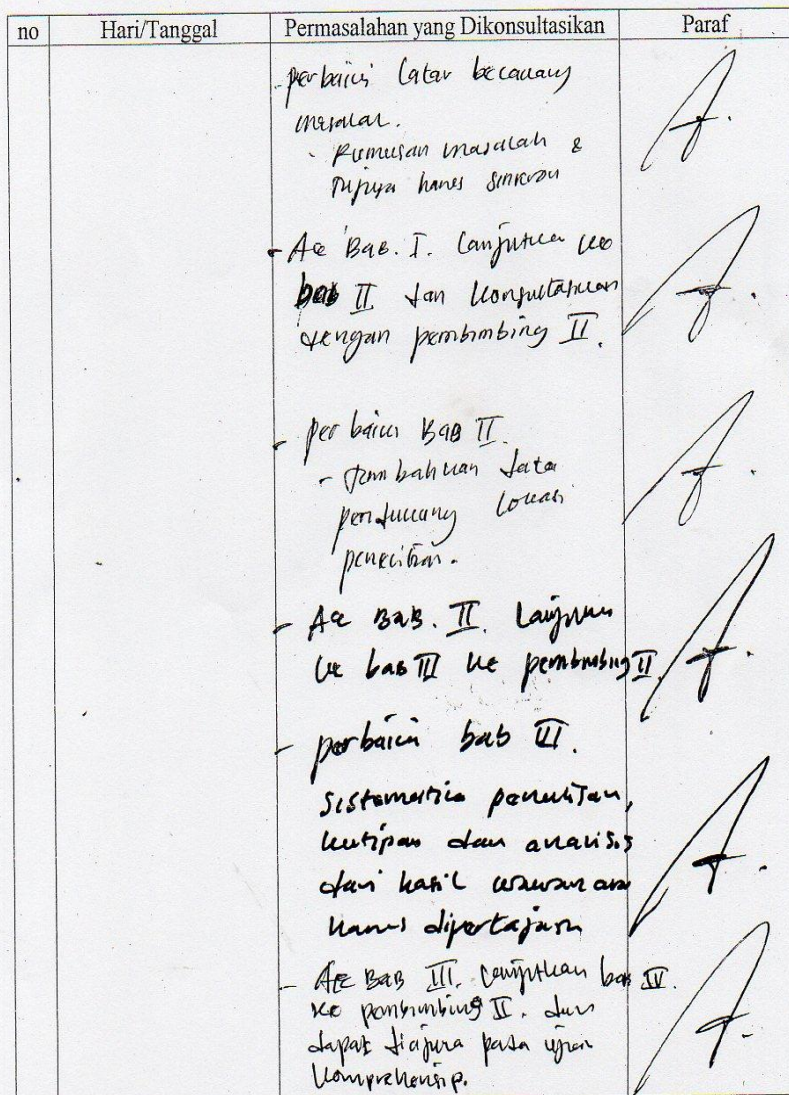 no Hari/Tanggal Permasalahan yang Dikonsultasikan Paraf
- perbaiki latar belakang
masalah.
- Rumusan masalah &
tujuan harus sinkron
- Acc Bab. I. lanjutkan ke
bab II dan konsultasikan
dengan pembimbing II.
- perbaiki Bab II.
- tambahkan data
pendukung lokasi
penelitian.
- Acc Bab. II. lanjutkan
ke bab III ke pembimbing II
- perbaiki bab III.
sistematika penulisan,
kutipan dan analisis
dari hasil wawancara
harus dipertajam
- Acc Bab III. lanjutkan bab IV.
ke pembimbing II. dan
dapat diajukan pada ujian
komprehensip.